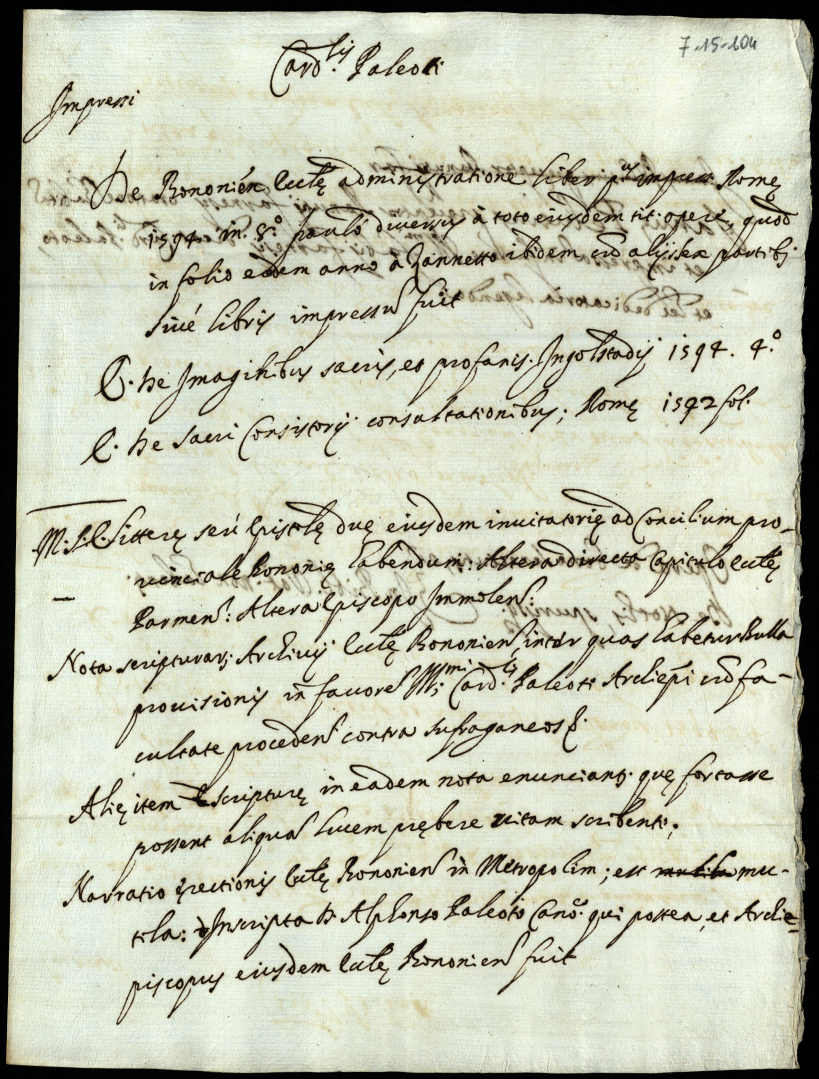 7-15-104
Card.lis Paleoti
Impressi
De Bononien Eccłę administratione liber p.us impress Romę
1594. in. 8.º paulò diversus à toto eiusdem tit. opere, quod
in folio eodem anno à Zannetto ibidem cum alijs partibj.
sivé libris impressũ fuit
E. De Imaginibus sacris, et profanis. Ingolstadij 1594. 4.º
E. De Sacri Consistorij consultationibus; Romę 1592 fol.
M.S.E. Litterę seú Epistolę duę eiusdem invitatorię ad Concilium pro-
vinciale Bononię habendum: Altera directa Capitulo Eccłę
Parmen: Altera Episcopo Immolen:
Nota scripturarj. Archivij Eccłę Bononien inter quas habetur Bulla
provisionis in favore Ill.mi Card.lis Paleoti Archiepi cum fa-
cultate proceden contra sufraganeos
Alię item scripturę in eadem nota enunciantj. quę fortasse
possent aliqua lucem prębere vitam scribenti;
Narratio ęrectionis Eccłę Bononien in Metropolim; est mu-
tila: Inscripta D. Alphonso Paleoto Can.º qui postea, et Archie-
piscopus eiusdem Eccłę Bononien fuit